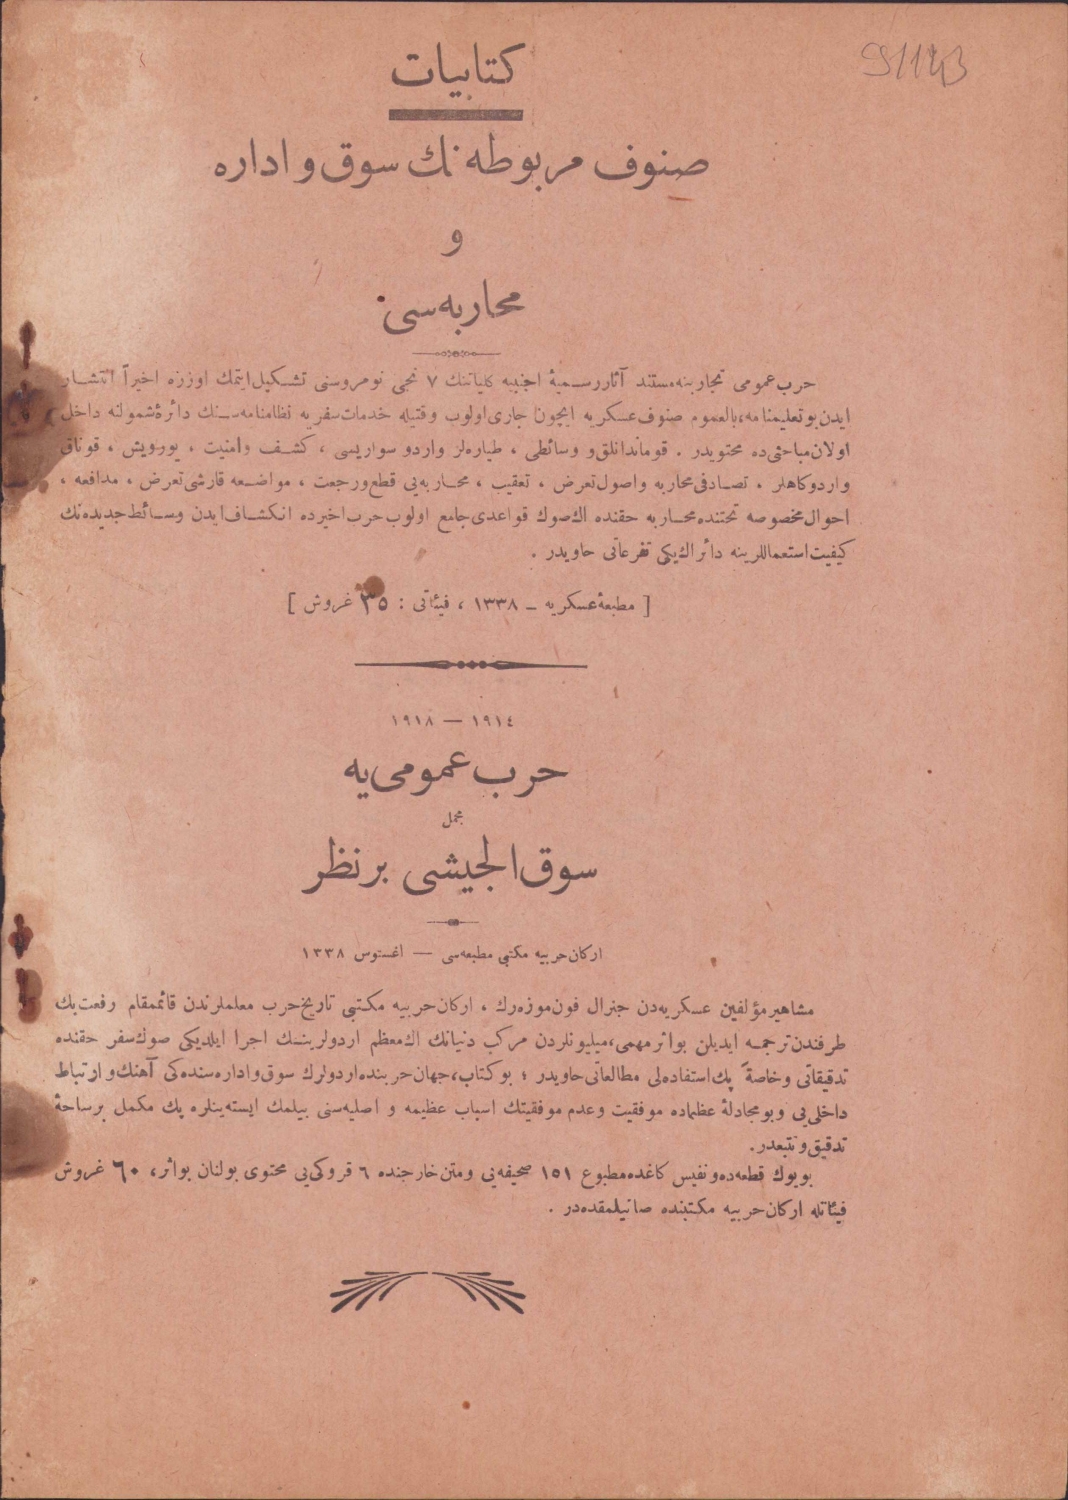 91143
كتابيات
صنوف مربوطه نك سوق و اداره
و
محاربه سى
حرب عمومى تجاربنه مستند آثار رسمية اجنبيه كلياتنك ٧ نجى نومروسنى تشكيل ايتمك اوزره اخيراً انتشار
ايدن بو تعليمنامه، بالعموم صنوف عسكريه ايچون جارى اولوب وقتيله خدمات سفريه نظامنامه سنك دائرۀ شمولنه داخل
اولان مباحثى ده محتويدر . قوماندانلق و وسائطى ، طياره لر واردو سواريسى ، كشف وامنيت ، يورويش ، قوناق
واردوكاهلر . تصادفى محاربه واصول تعرض ، تعقيب ، محاربه يى قطع ورجعت ، مواضعه قارشى تعرض ، مدافعه ،
احوال مخصوصه تحتنده محاربه حقنده اك صوك قواعدى جامع اولوب حرب اخيرده انكشاف ايدن وسائط جديده نك
كيفيت استعماللرينه دائر اك يكى تفرعاتى حاويدر .
[ مطبعۀ عسكريه ــ ١٣٣٨ ، فيئاتى : ٣٥ غروش ]
١٩١٤ — ١٩١٨
حرب عمومى يه
مجمل
سوق الجيشى بر نظر
اركان حربيه مكتبى مطبعه سى — اغستوس ١٣٣٨
مشاهير مؤلفين عسكريه دن جنرال فون موزه رك ، اركان حربيه مكتبى تاريخ حرب معلملرندن قائممقام رفعت بك
طرفندن ترجمه ايديلن بو اثر مهمى، ميليونلردن مركب دنيانك اك معظم اردولرينك اجرا ايلديكى صوك سفر حقنده
تدقيقاتى وخاصةً پك استفاده لى مطالعاتى حاويدر ؛ بو كتاب، جهان حربنده اردولرك سوق و اداره سنده كى آهنك و ارتباط
داخلى يى وبو مجادلۀ عظماده موفقيت وعدم موفقيتك اسباب عظيمه و اصليه سنى بيلمك ايسته ينلره پك مكمل بر ساحۀ
تدقيق و تتبعدر.
بويوك قطعه ده ونفيس كاغده مطبوع ١٥١ صحيفه يى ومتن خارجنده ٦ قروكى يى محتوى بولنان بو اثر، ٦٠ غروش
فيئاتله اركان حربيه مكتبنده صاتيلمقده در .